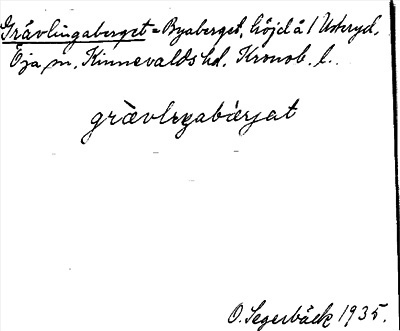 Grävlingaberget = Byaberget, höjd å 1 Usteryd,
Öja sn, Kinnevalds hd, Kronob. l..
grävlıŋabærjat
O. Segerbäck 1935.